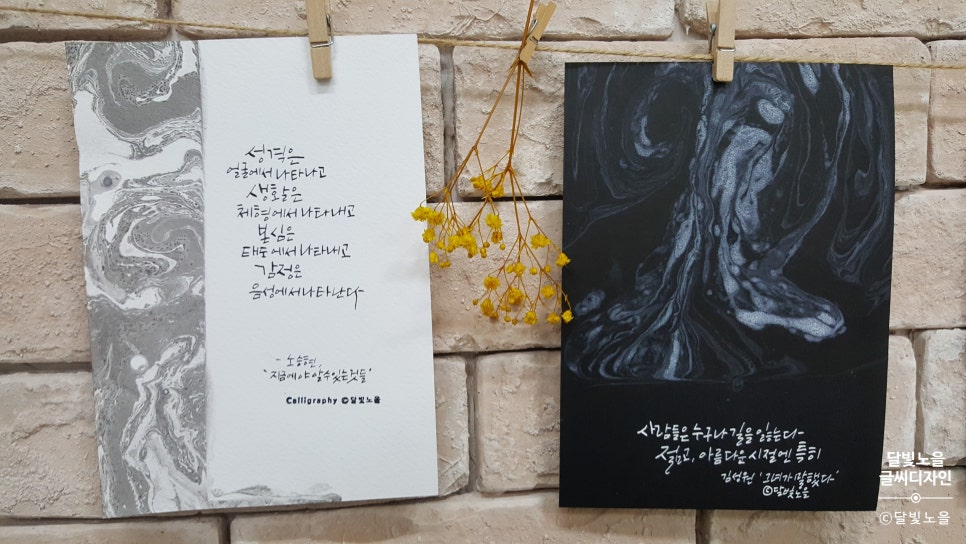 성격은
얼굴에서 나타나고
생활은
체형에서 나타내고
본심은
태도에서 나타내고
감정은
음성에서 나타난다
- 노승현,
"지금에야 알 수 있는 것들"
Calligraphy ©달빛노을
사람들은 누구나 길을 잃는다-
젊고, 아름다운 시절엔 특히
김성원 '그녀가 말했다'
©달빛노을
달빛노을
글씨디자인
©달빛노을